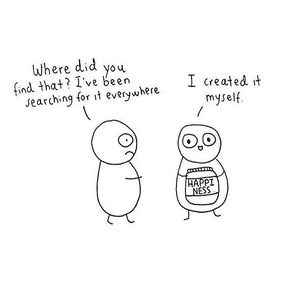 Where did you
find that? I've been
searching for it everywhere
I created it
myself.
HAPPI
NESS